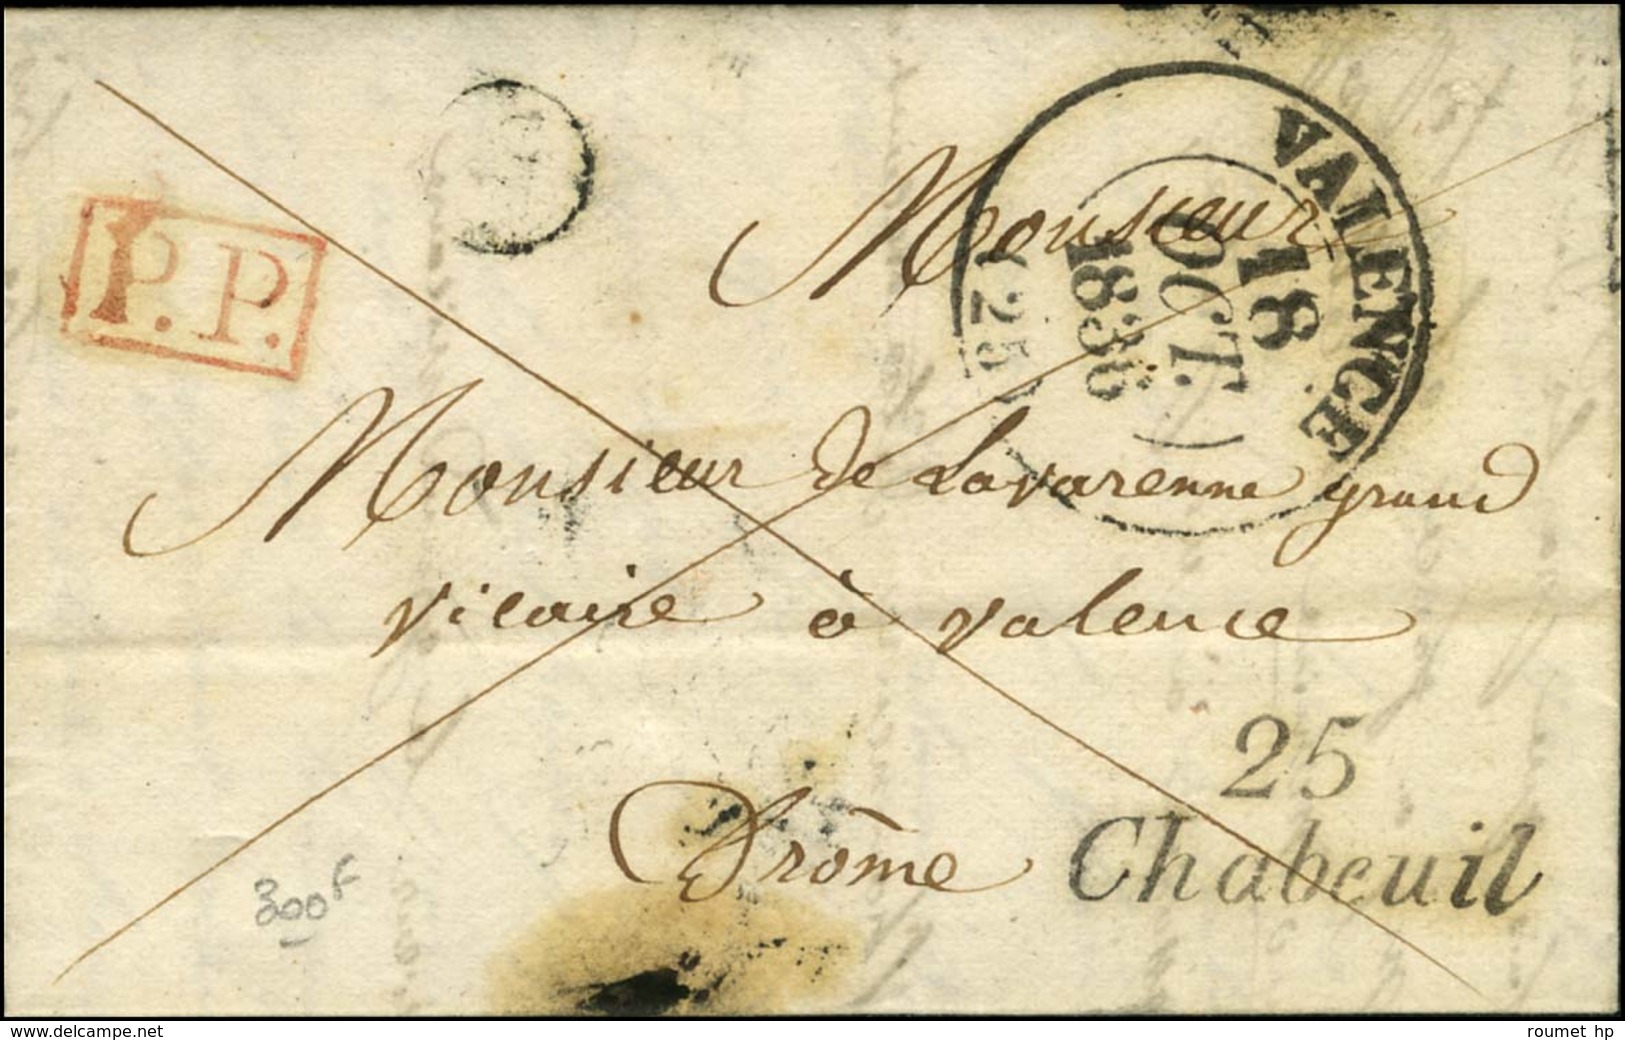 P.P.
VALENCE
18
OCT.
1836
(25)
Monsieur
Monsieur de Lavarenne grand
vicaire à valence
Drôme
25
Chabeuil
300F
www.delcampe.net
roumet hp